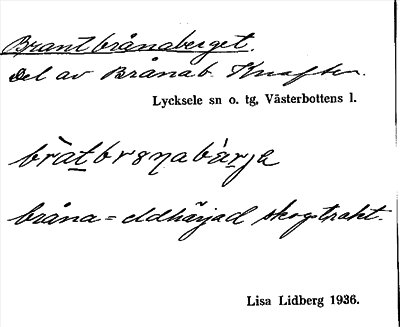 Brantbrånaberget.
Del av Brånab. Knaften.
Lycksele sn o. tg, Västerbottens l.
bråna = eldhärjad skogstrakt.
Lisa Lidberg 1936.